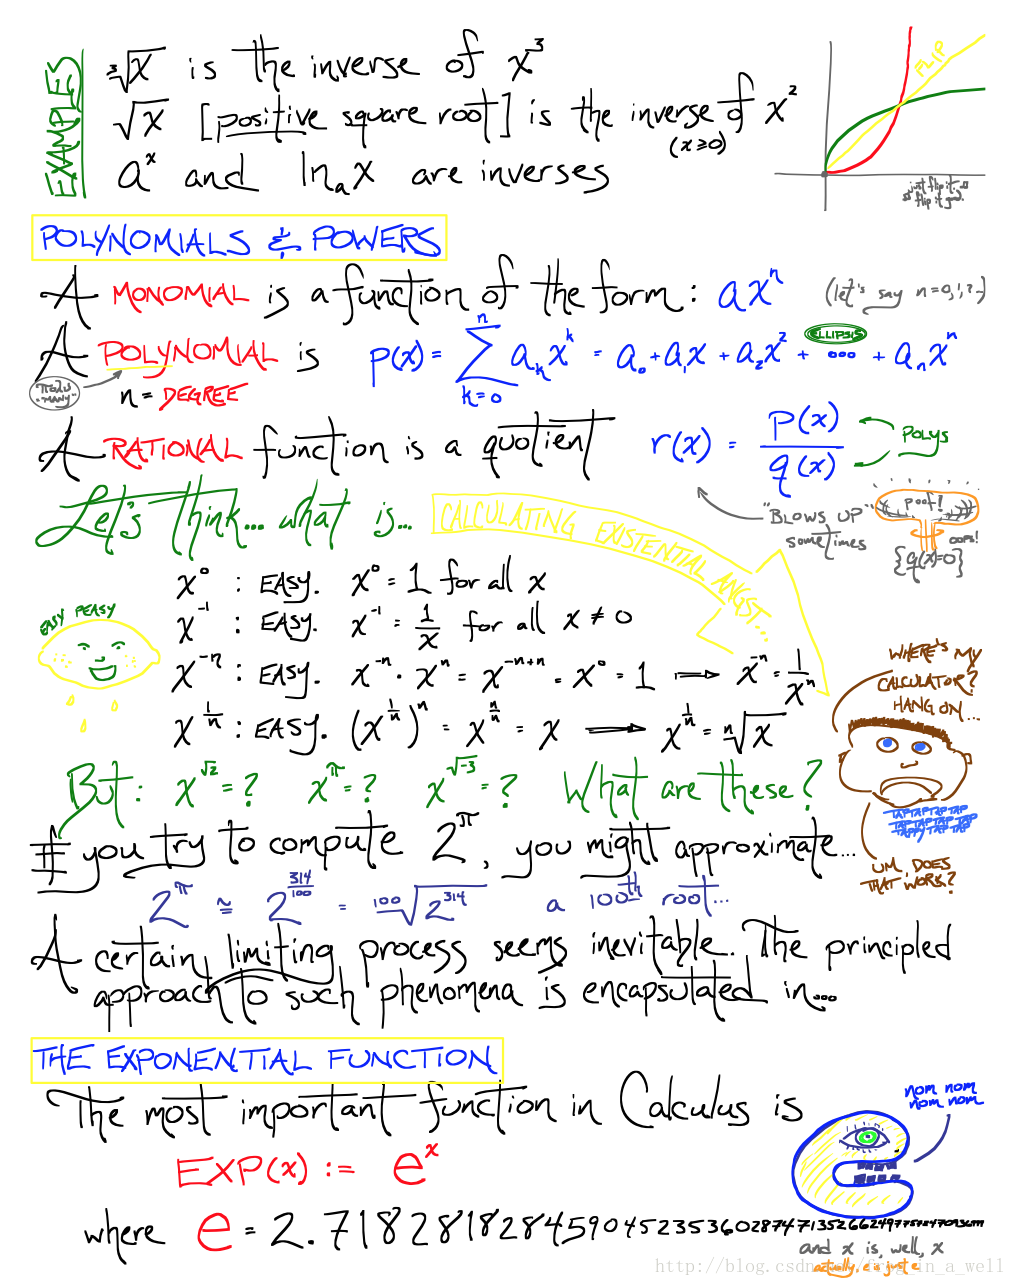 EXAMPLES
∛x is the inverse of x³
√x [positive square root] is the inverse of x²
(x≥0)
aˣ and lnₐx are inverses
FLIP
just flip it.
flip it good.
POLYNOMIALS & POWERS
A MONOMIAL is a function of the form: axⁿ (let's say n=0,1,2..)
A POLYNOMIAL is p(x) = ∑ₖ₌₀ⁿ aₖxᵏ = a₀ + a₁x + a₂x² + ... + aₙxⁿ
ELLIPSIS
MANY
n = DEGREE
A RATIONAL function is a quotient r(x) = p(x)/q(x)
POLYS
Let's think... what is...
CALCULATING EXISTENTIAL ANGST...
"BLOWS UP" sometimes
poof!
oops!
{q(x)=0}
x⁰ : EASY. x⁰ = 1 for all x
x⁻¹ : EASY. x⁻¹ = 1/x for all x ≠ 0
x⁻ⁿ : EASY. x⁻ⁿ · xⁿ = x⁻ⁿ⁺ⁿ = x⁰ = 1 ⟹ x⁻ⁿ = 1/xⁿ
x^(1/n) : EASY. (x^(1/n))ⁿ = x^(n/n) = x ⟹ x^(1/n) = ⁿ√x
EASY PEASY
WHERE'S MY
CALCULATOR?
HANG ON...
But: x^√2 = ? x^π = ? x^√-3 = ? What are these?
TAPTAPTAPTAP
TAPTAPTAPTAP
TAPPY TAPTAP
UM, DOES
THAT WORK?
If you try to compute 2^π, you might approximate...
2^π ≅ 2^(314/100) = ¹⁰⁰√2³¹⁴ a 100th root...
A certain limiting process seems inevitable. The principled
approach to such phenomena is encapsulated in...
THE EXPONENTIAL FUNCTION
The most important function in Calculus is
nom nom
nom nom
EXP(x) := eˣ
where e = 2.718281828459045235360287471352662497757247093699
and x is, well, x
actually, e is just e
http://blog.csdn.net/frog_in_a_well